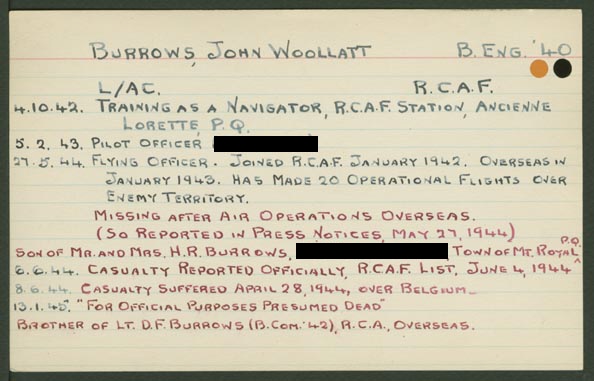 BURROWS, JOHN WOOLLATT B. ENG. '40
L/AC. R.C.A.F.
4.10.42. TRAINING AS A NAVIGATOR, R.C.A.F. STATION, ANCIENNE
LORETTE, P.Q.
5.2.43. PILOT OFFICER
27.5.44. FLYING OFFICER. JOINED R.C.A.F. JANUARY 1942. OVERSEAS IN
JANUARY 1943. HAS MADE 20 OPERATIONAL FLIGHTS OVER
ENEMY TERRITORY.
MISSING AFTER AIR OPERATIONS OVERSEAS.
(SO REPORTED IN PRESS NOTICES, MAY 27, 1944)
SON OF MR. AND MRS. H.R. BURROWS, TOWN OF MT. ROYAL, P.Q.
6.6.44. CASUALTY REPORTED OFFICIALLY, R.C.A.F. LIST, JUNE 4, 1944
8.6.44. CASUALTY SUFFERED APRIL 28, 1944, OVER BELGIUM_
13.1.45. "FOR OFFICIAL PURPOSES PRESUMED DEAD"
BROTHER OF LT. D.F. BURROWS (B.COM. '42), R.C.A., OVERSEAS.